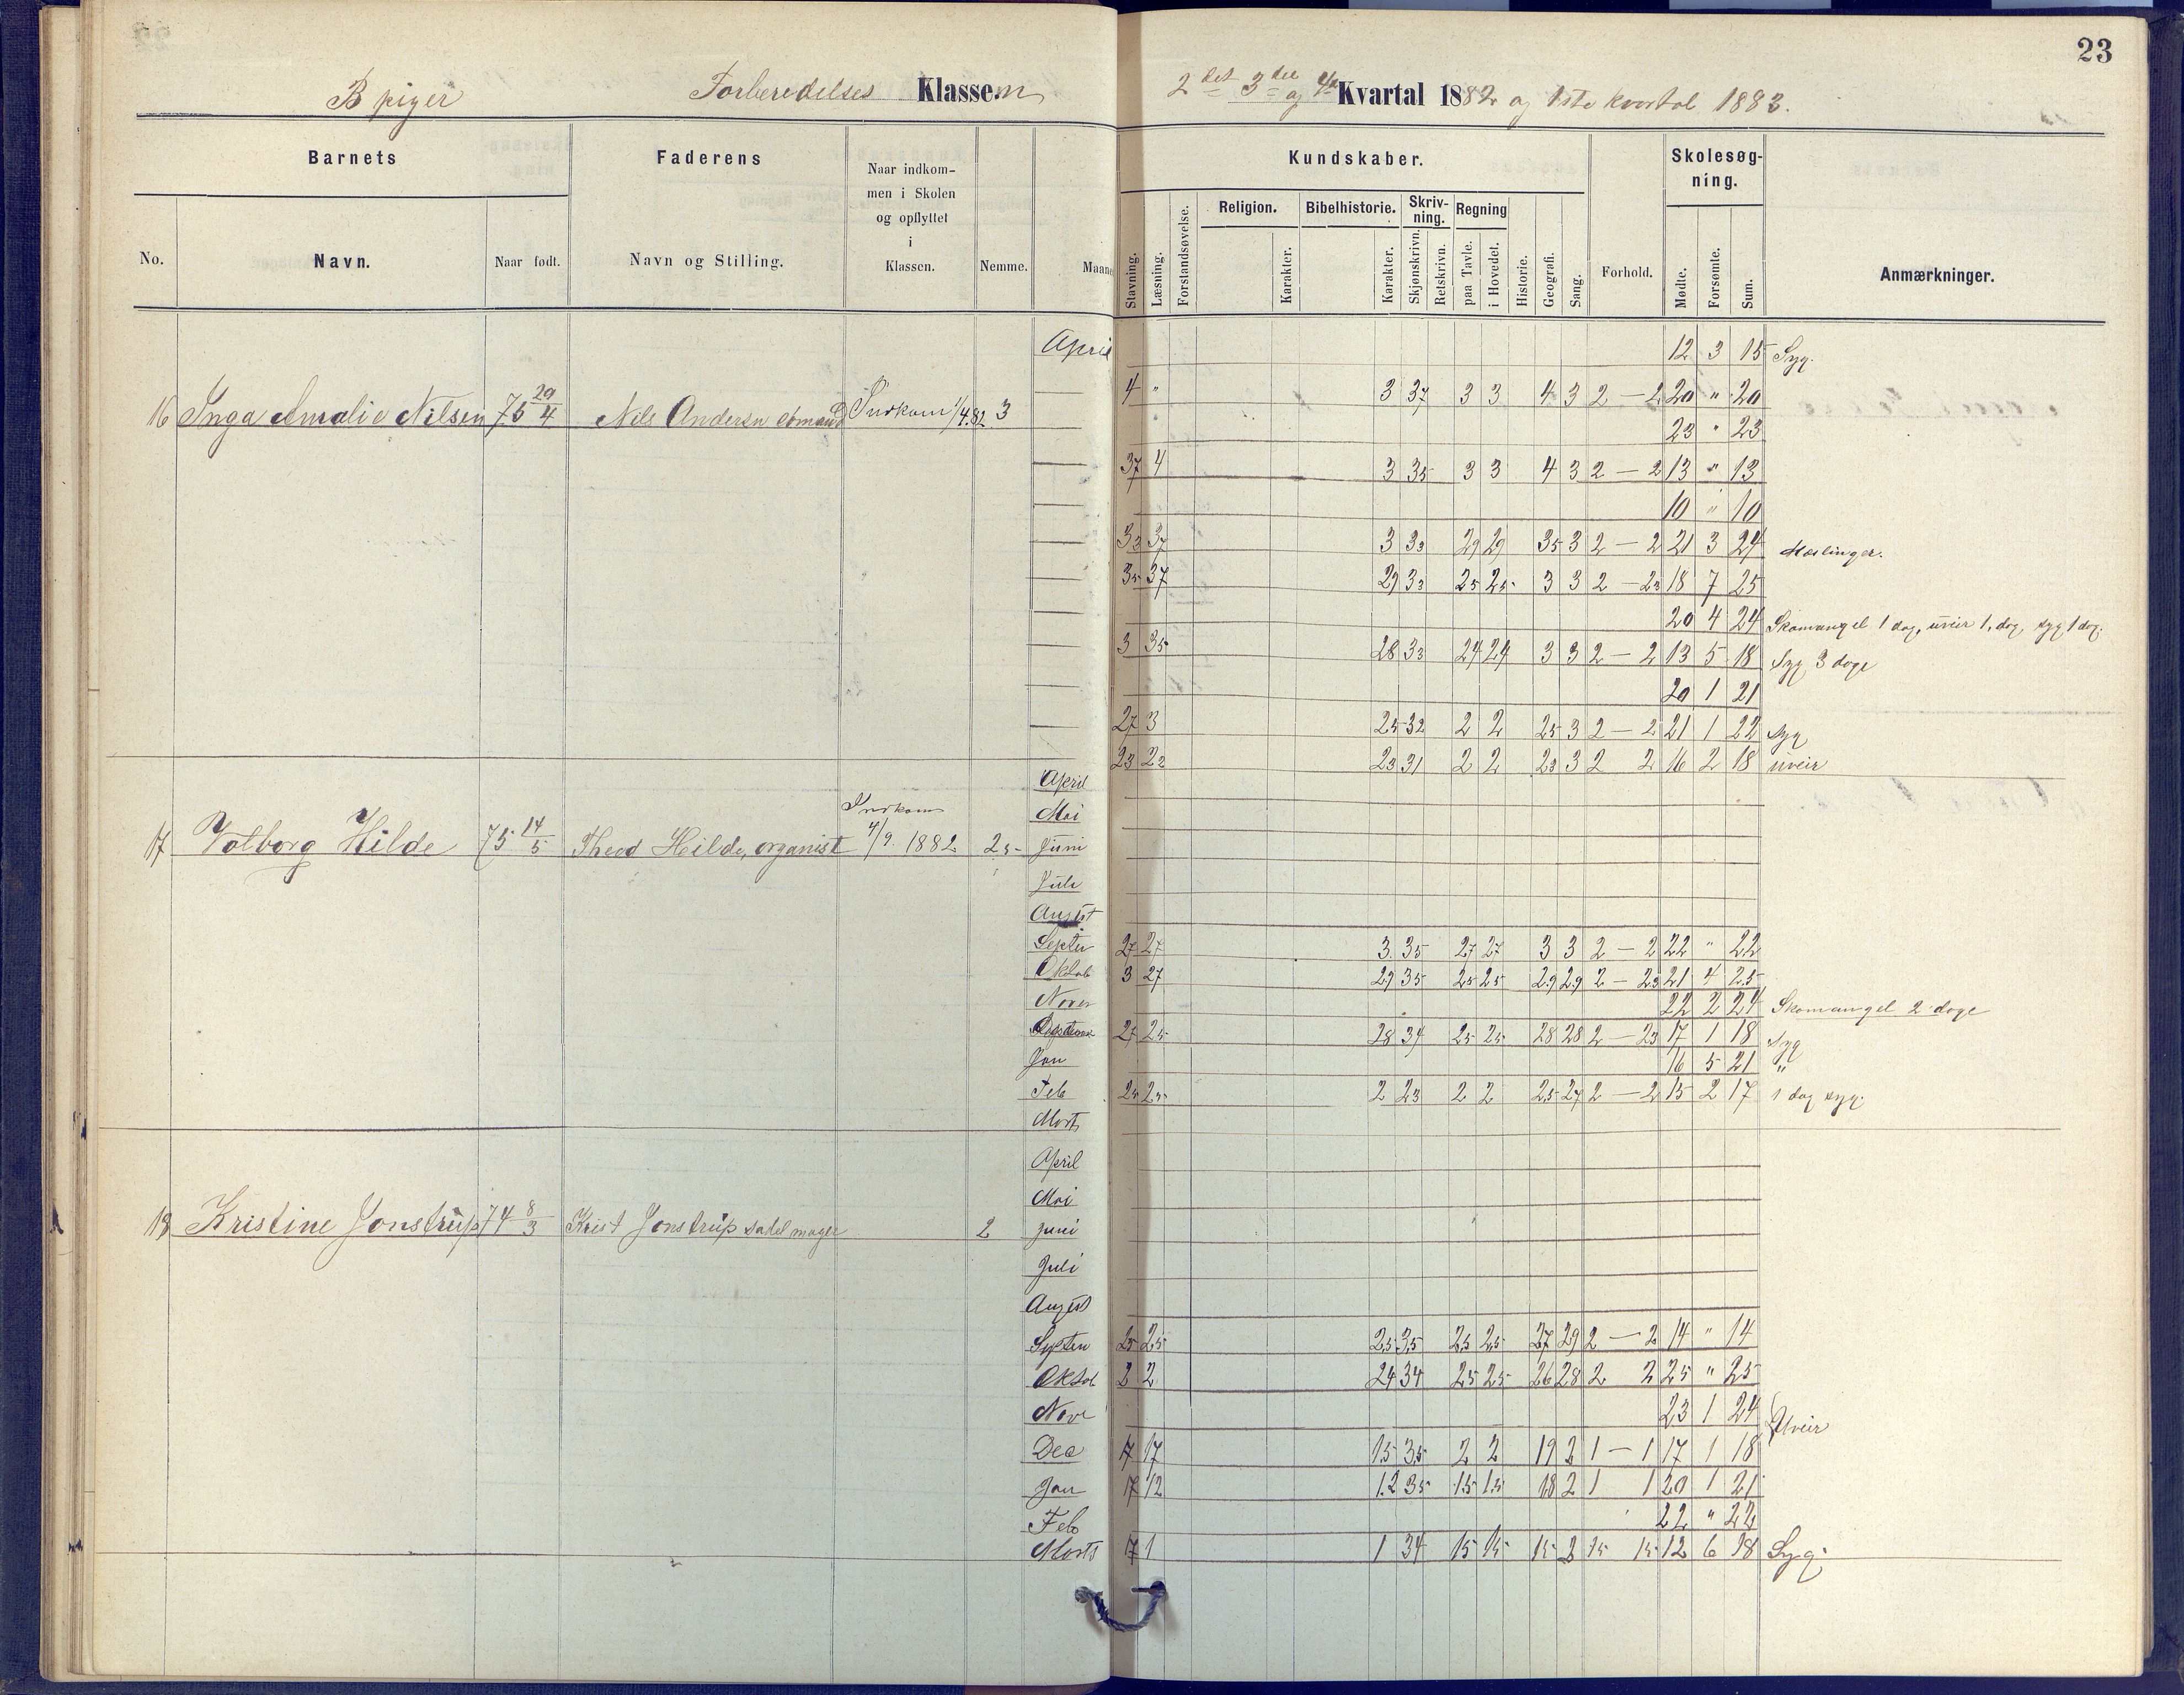 23
B piger Forberedelses Klassen
2det 3die og 4de Kvartal 1882 og 1ste kvartal 1883.
Barnets Faderens Naar indkom-
men i Skolen
og opflyttet
i
Klassen.
No. Navn. Naar født. Navn og Stilling. Nemme. Maane
Kundskaber. Skolesøg-
ning.
Stavning. Læsning. Forstandsøvelse. Religion. Karakter. Bibelhistorie. Karakter. Skriv-
ning. Skjønskrivn. Retskrivn. Regning paa Tavle. i Hovedet. Historie. Geografi. Sang. Forhold. Mødte. Forsømte. Sum. Anmærkninger.
April 12 3 15 Syg.
4 " 3 37 3 3 4 3 2 — 2 20 " 20
16 Inga Amalie Nilsen 75 29/4 Nils Andersn Indkom 1/4.82 3
23 " 23
37 4 3 35 3 3 4 3 2 — 2 13 " 13
10 " 10
33 37 3 33 29 29 35 3 2 — 2 21 3 24 Mæslinger.
35 37 29 33 25 25 3 3 2 — 23 18 7 25
20 4 24 Skomangel 1 dag, uveir 1 dag, syg 1 dag.
3 35 28 33 24 24 3 3 2 — 2 13 5 18 Syg 3 dage
20 1 21
27 3 25 32 2 2 25 3 2 — 2 21 1 22 Syg
23 22 23 31 2 2 23 3 2 2 16 2 18 uveir
April
Mai
17 Valborg Hilde 75 14/5 Theod Hilde, organist Indkom 4/9. 1882 25 Juni
Juli
August
Septer 27 27 3 35 27 27 3 3 2 — 2 22 " 22
Oktob 3 27 29 35 25 25 29 29 2 — 23 21 4 25
Nover 22 2 24 Skomangel 2 dage
27 25 28 34 25 25 28 28 2 — 23 17 1 18 Syg
Jan 16 5 21 "
Feb 25 25 2 23 2 2 25 27 2 — 2 15 2 17 1 dag syg.
Marts
April
Mai
18 Kristine Jonstrup 74 8/3 Krist Jonstrup sadelmager 2 Juni
Juli
August
Septen 25 25 25 35 25 25 27 29 2 — 2 14 " 14
Oktob 2 2 24 34 25 25 26 28 2 2 25 " 25
Nove 23 1 24 Uveir
Dec 17 17 15 35 2 2 19 2 1 — 1 17 1 18
Jan 17 12 12 35 15 15 18 2 1 1 20 1 21
Feb 22 " 22
Marts 17 1 1 34 15 15 15 2 15 15 12 6 18 Syg.